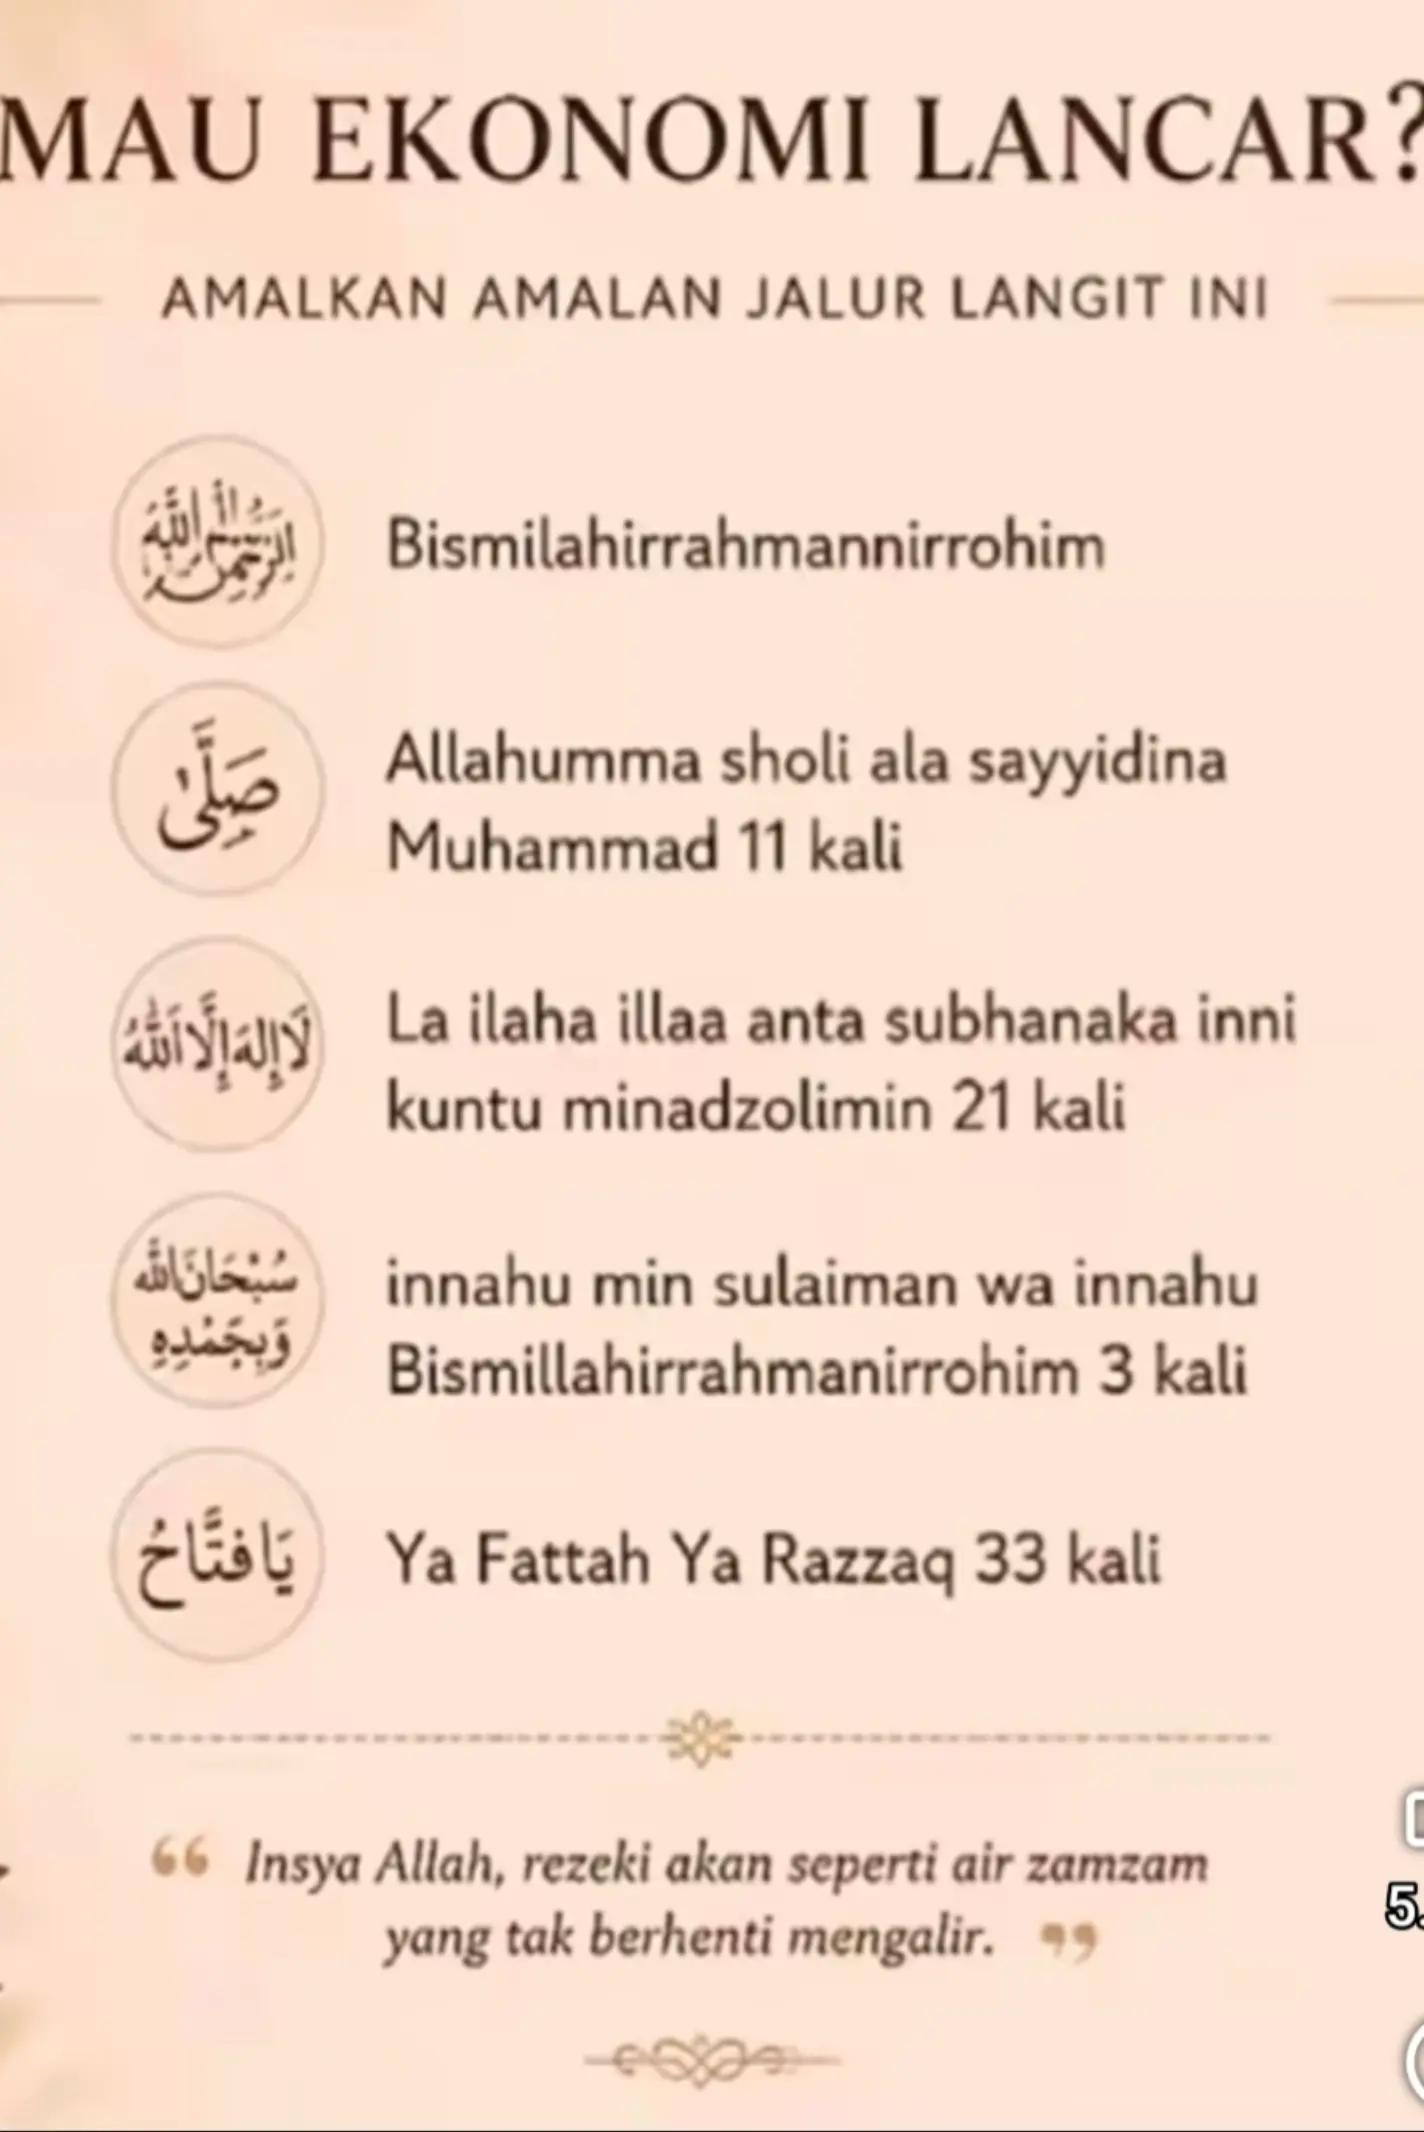 MAU EKONOMI LANCAR?
AMALKAN AMALAN JALUR LANGIT INI
Bismilahirrahmannirrohim
صَلَّى
Allahumma sholi ala sayyidina
Muhammad 11 kali
لَا إِلٰهَ إِلَّا اللّٰهُ
La ilaha illaa anta subhanaka inni
kuntu minadzolimin 21 kali
سُبْحَانَ اللّٰه
وَبِحَمْدِهِ
innahu min sulaiman wa innahu
Bismillahirrahmanirrohim 3 kali
يَا فَتَّاحُ
Ya Fattah Ya Razzaq 33 kali
“ Insya Allah, rezeki akan seperti air zamzam
yang tak berhenti mengalir. ”